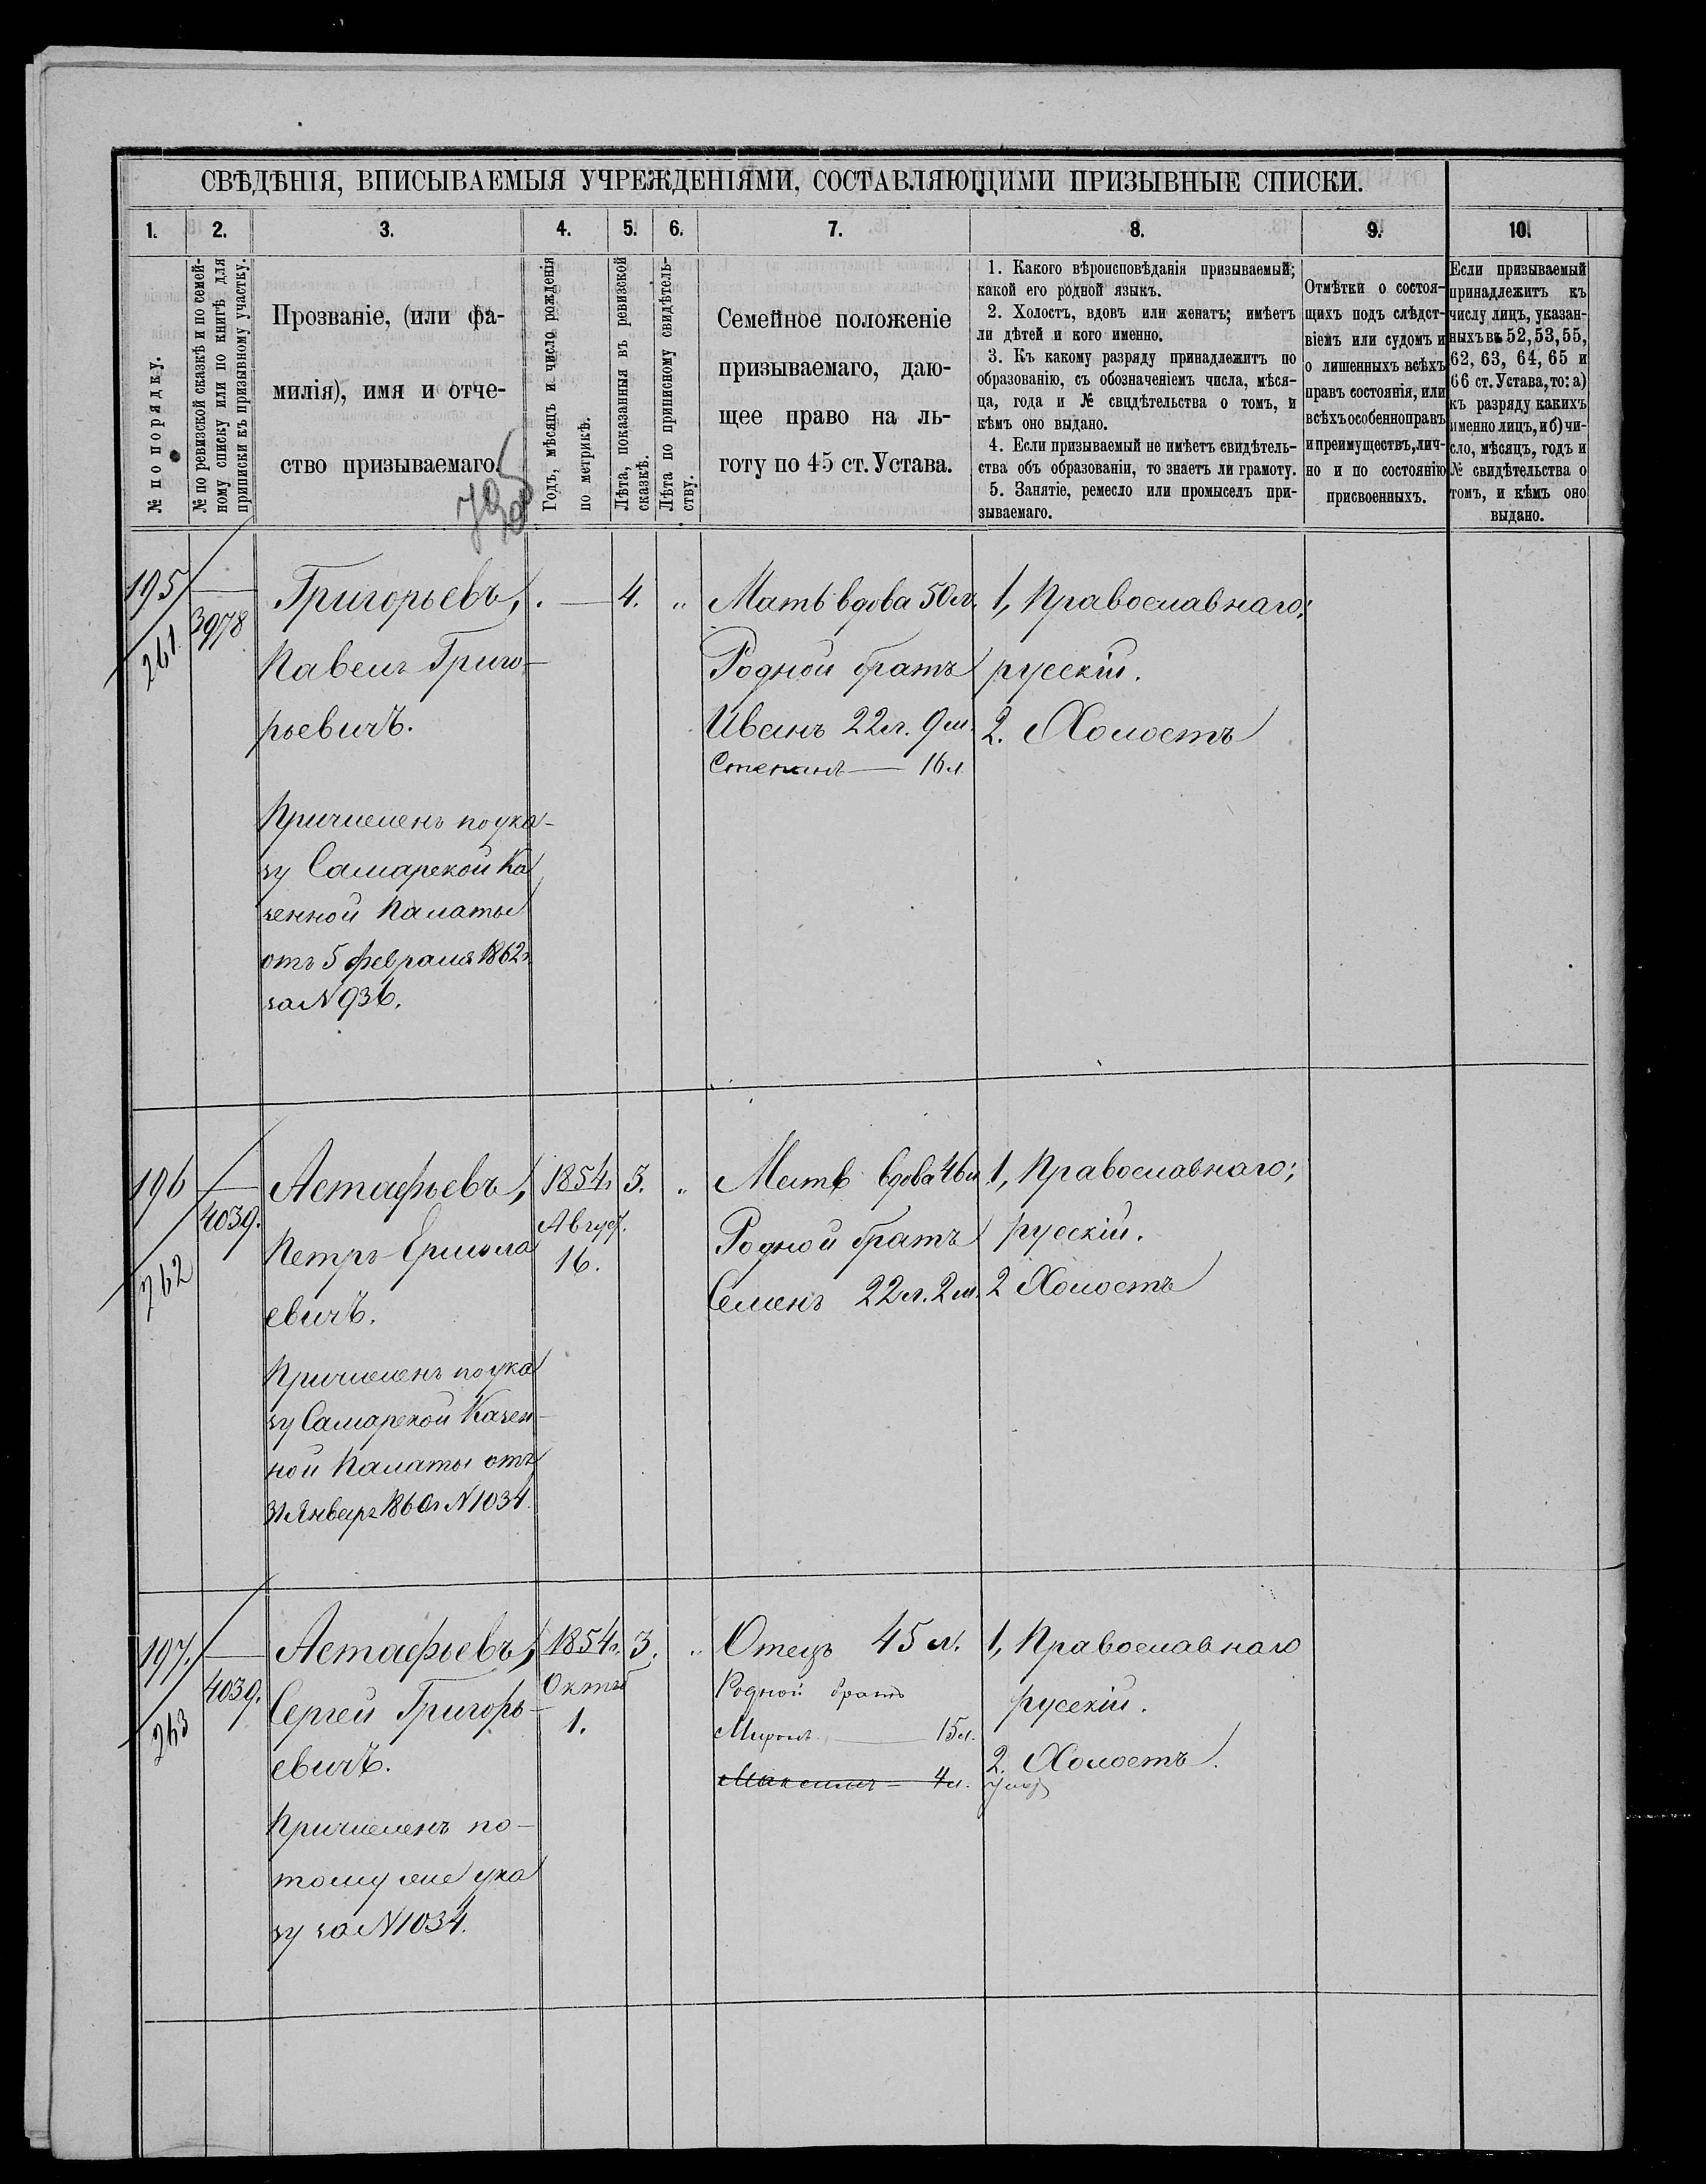 СВѢДѢНІЯ, ВПИСЫВАЕМЫЯ УЧРЕЖДЕНІЯМИ, СОСТАВЛЯЮЩИМИ ПРИЗЫВНЫЕ СПИСКИ.
1.
2.
3.
4.
5.
6.
7.
8.
9.
10.
№ по порядку.
№ по ревизской сказкѣ и по семей-
ному списку или по книгѣ для
приписки къ призывному участку.
Прозваніе, (или фа-
милія), имя и отче-
ство призываемаго.
Годъ, мѣсяцъ и число рожденія
по метрикѣ.
Лѣта, показанныя въ ревизской
сказкѣ.
Лѣта по приписному свидѣтель-
ству.
Семейное положеніе
призываемаго, даю-
щее право на ль-
готу по 45 ст. Устава.
1. Какого вѣроисповѣданія призываемый;
какой его родной языкъ.
2. Холостъ, вдовъ или женатъ; имѣетъ
ли дѣтей и кого именно.
3. Къ какому разряду принадлежитъ по
образованію, съ обозначеніемъ числа, мѣся-
ца, года и № свидѣтельства о томъ, и
кѣмъ оно выдано.
4. Если призываемый не имѣетъ свидѣтель-
ства объ образованіи, то знаетъ ли грамоту.
5. Занятіе, ремесло или промыселъ при-
зываемаго.
Отмѣтки о состоя-
щихъ подъ слѣдст-
віемъ или судомъ и
о лишенныхъ всѣхъ
правъ состоянія, или
всѣхъ особенно правъ
и преимуществъ, лич-
но и по состоянію
присвоенныхъ.
Если призываемый
принадлежитъ къ
числу лицъ, указан-
ныхъ въ 52, 53, 55,
62, 63, 64, 65 и
66 ст. Устава, то: а)
къ разряду какихъ
именно лицъ, и б) чи-
сло, мѣсяцъ, годъ и
№ свидѣтельства о
томъ, и кѣмъ оно
выдано.
195
261
3978
Григорьевъ,
Павелъ Григо-
рьевичъ.
Причисленъ по ука-
зу Самарской Ка
зенной Палаты
отъ 5 февраля 1862г.
за N 936.
4.
"
Мать вдова 50 л.
Родной братъ
Иванъ 22 л. 9 м.
Степанъ — 16 л
1, Православнаго;
русскій.
2. Холостъ
196
262
4039.
Астафьевъ,
Петръ Ермола
евичъ.
Причисленъ по ука
зу Самарской Казен-
ной Палаты отъ
31 Январ. 1860г. N 1034.
1854г.
Август.
16.
3.
"
Мать вдова 46 л
Родной братъ
Семенъ 22 л. 2 м.
1, Православнаго;
русскій.
2 Холостъ
197.
263
4039.
Астафьевъ,
Сергей Григорь-
евичъ.
Причисленъ по-
тому же ука
зу за N 1034.
1854г.
Октяб
1.
3.
"
Отецъ 45 л.
Родной братъ
Миронъ — 15 л.
Максимъ — 4 л.
1, Православнаго
русскій.
2. Холостъ.